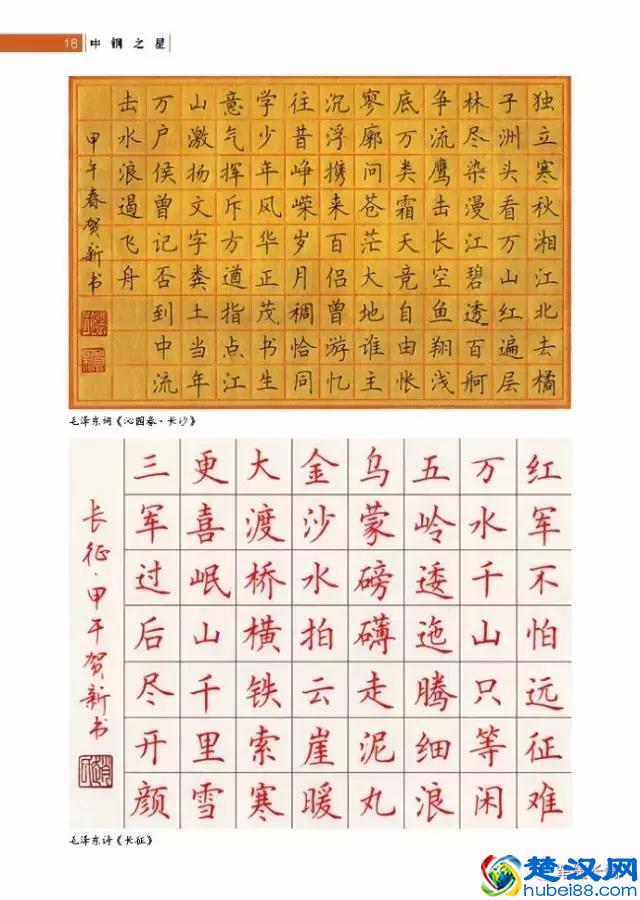 16 中钢之星
独立寒秋湘江北去橘
子洲头看万山红遍层
林尽染漫江碧透百舸
争流鹰击长空鱼翔浅
底万类霜天竟自由怅
寥廓问苍茫大地谁主
沉浮携来百侣曾游忆
往昔峥嵘岁月稠恰同
学少年风华正茂书生
意气挥斥方遒指点江
山激扬文字粪土当年
万户侯曾记否到中流
击水浪遏飞舟
甲午春贺新书
毛泽东词《沁园春·长沙》
红军不怕远征难
万水千山只等闲
五岭逶迤腾细浪
乌蒙磅礴走泥丸
金沙水拍云崖暖
大渡桥横铁索寒
更喜岷山千里雪
三军过后尽开颜
长征·甲午贺新书
毛泽东诗《长征》
楚汉网
hubei88.com